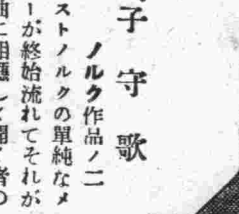 子守歌
ノルク作品ノ二
ストノルクの單純なメ
ーが終始流れてそれが